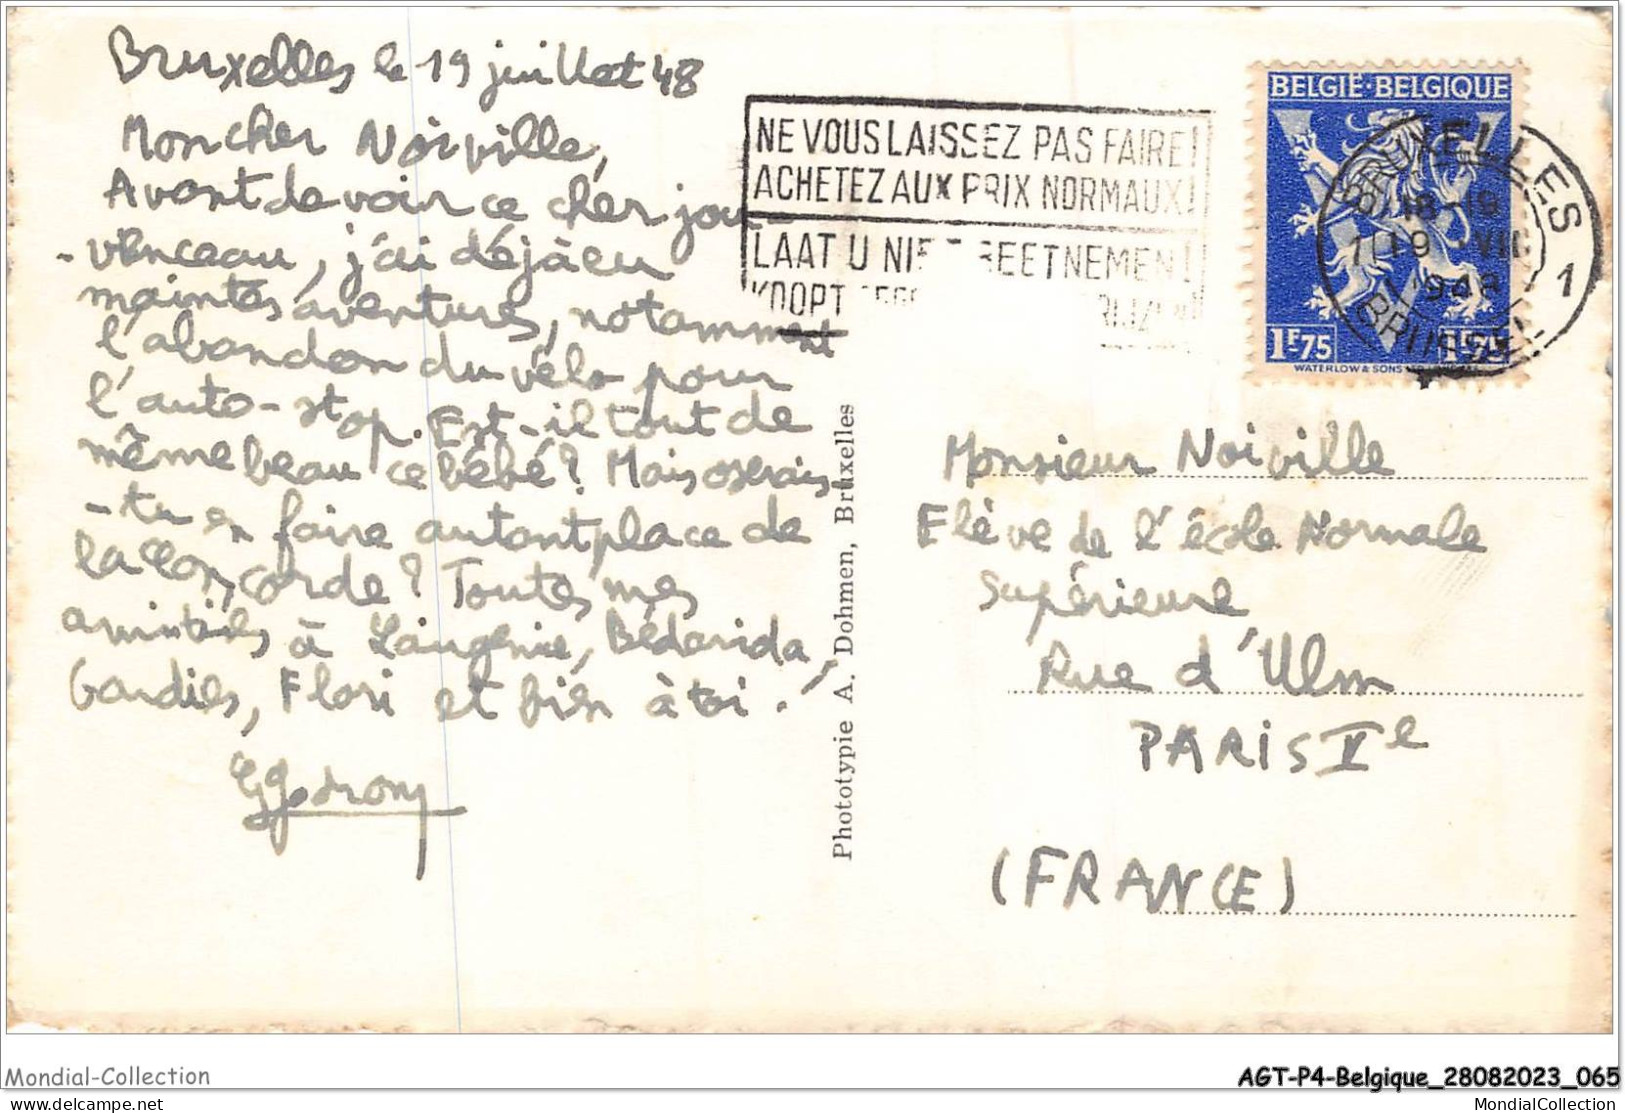 Bruxelles le 19 juillet 48
Mon cher Noirville,
Avant de voir ce cher jou-
-venceau, j'ai déjà eu
maintes aventures, notamment
l'abandon du vélo pour
l'auto-stop. Est-il tout de
même beau ce bébé? Mais oserais
-tu en faire autant place de
la Concorde? Toutes mes
amitiés à Laingenie, Bédarida,
Gardies, Flori et bien à toi.
NE VOUS LAISSEZ PAS FAIRE!
ACHETEZ AUX PRIX NORMAUX!
LAAT U NIET BEETNEMEN!
KOOPT
BELGIË·BELGIQUE
1F75 1F75
WATERLOW & SONS
BRUXELLES 1
18-19
19 VII
1948
BRUSSEL
Phototypie A. Dohmen, Bruxelles
Monsieur Noiville
Elève de l'école Normale
Supérieure
Rue d'Ulm
PARIS Ve
(FRANCE)
Mondial-Collection
AGT-P4-Belgique_28082023_065
www.delcampe.net
MondialCollection